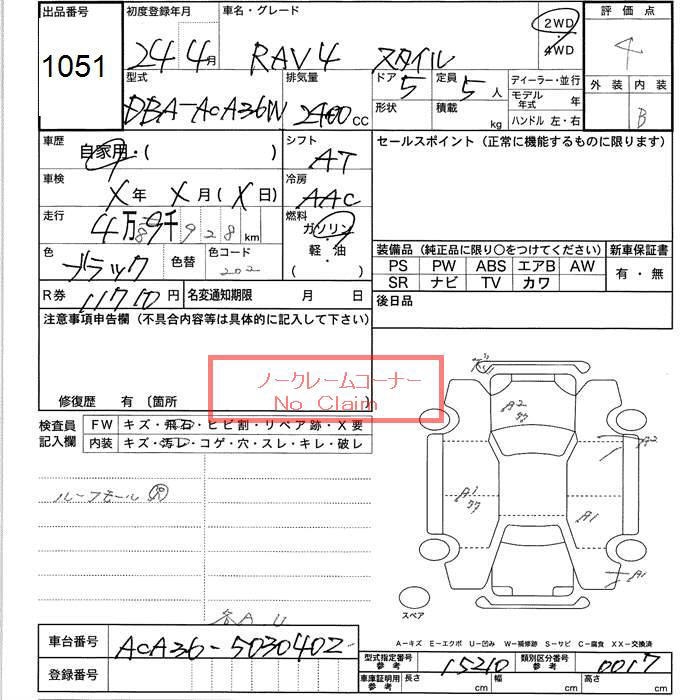 出品番号 初度登録年月 車名・グレード 2WD・4WD 評価点
1051 24年4月 RAV4 スタイル 4
型式 排気量 ドア 定員 ディーラー・並行 外装 内装
DBA-ACA36W 2400cc 5 5人 モデル年式 年 B
形状 積載 kg ハンドル 左・右
車歴 自家用・( ) シフト AT セールスポイント（正常に機能するものに限ります）
車検 X年 X月(X日) 冷房 AAC
走行 4万 9千 928km 燃料 ガソリン・軽・油 ( )
色 ブラック 色替 色コード 202
装備品（純正品に限り○をつけてください） 新車保証書
PS PW ABS エアB AW 有・無
SR ナビ TV カワ
R券 11710円 名変通知期限 月 日 後日品
注意事項申告欄（不具合内容等は具体的に記入して下さい）
ノークレームコーナー
No Claim
修復歴 有 〔箇所
検査員記入欄 FW キズ・飛石・ヒビ割・リペア跡・X要
内装 キズ・汚レ・コゲ・穴・スレ・キレ・破レ
ルーフモール
A2
A2
A1
A1
A1
スペア
各A U
A-キズ E-エクボ U-凹み W-補修跡 S-サビ C-腐食 XX-交換済
車台番号 ACA36-5030402
型式指定番号 参考 15210 類別区分番号 参考 0017
登録番号
車庫証明用 参考 長さ cm 幅 cm 高さ cm